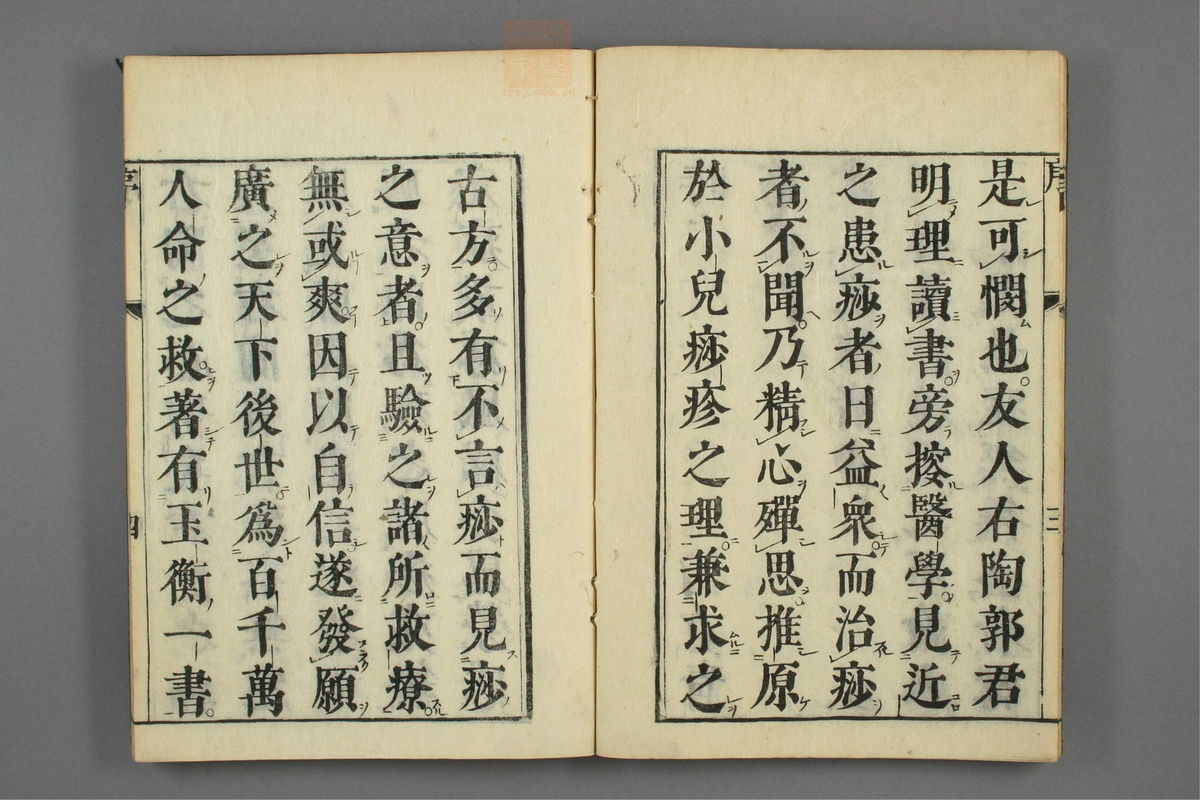 是可憫也友人右陶郭君
明理讀書旁按醫學見近
之患痧者日益衆而治痧
者不聞乃精心殫思推原
於小兒痧疹之理兼求之
序
三
古方多有不言痧而見痧
之意者且驗之諸所救療
無或爽因以自信遂發願
廣之天下後世為百千萬
人命之救著有玉衡一書
序
四